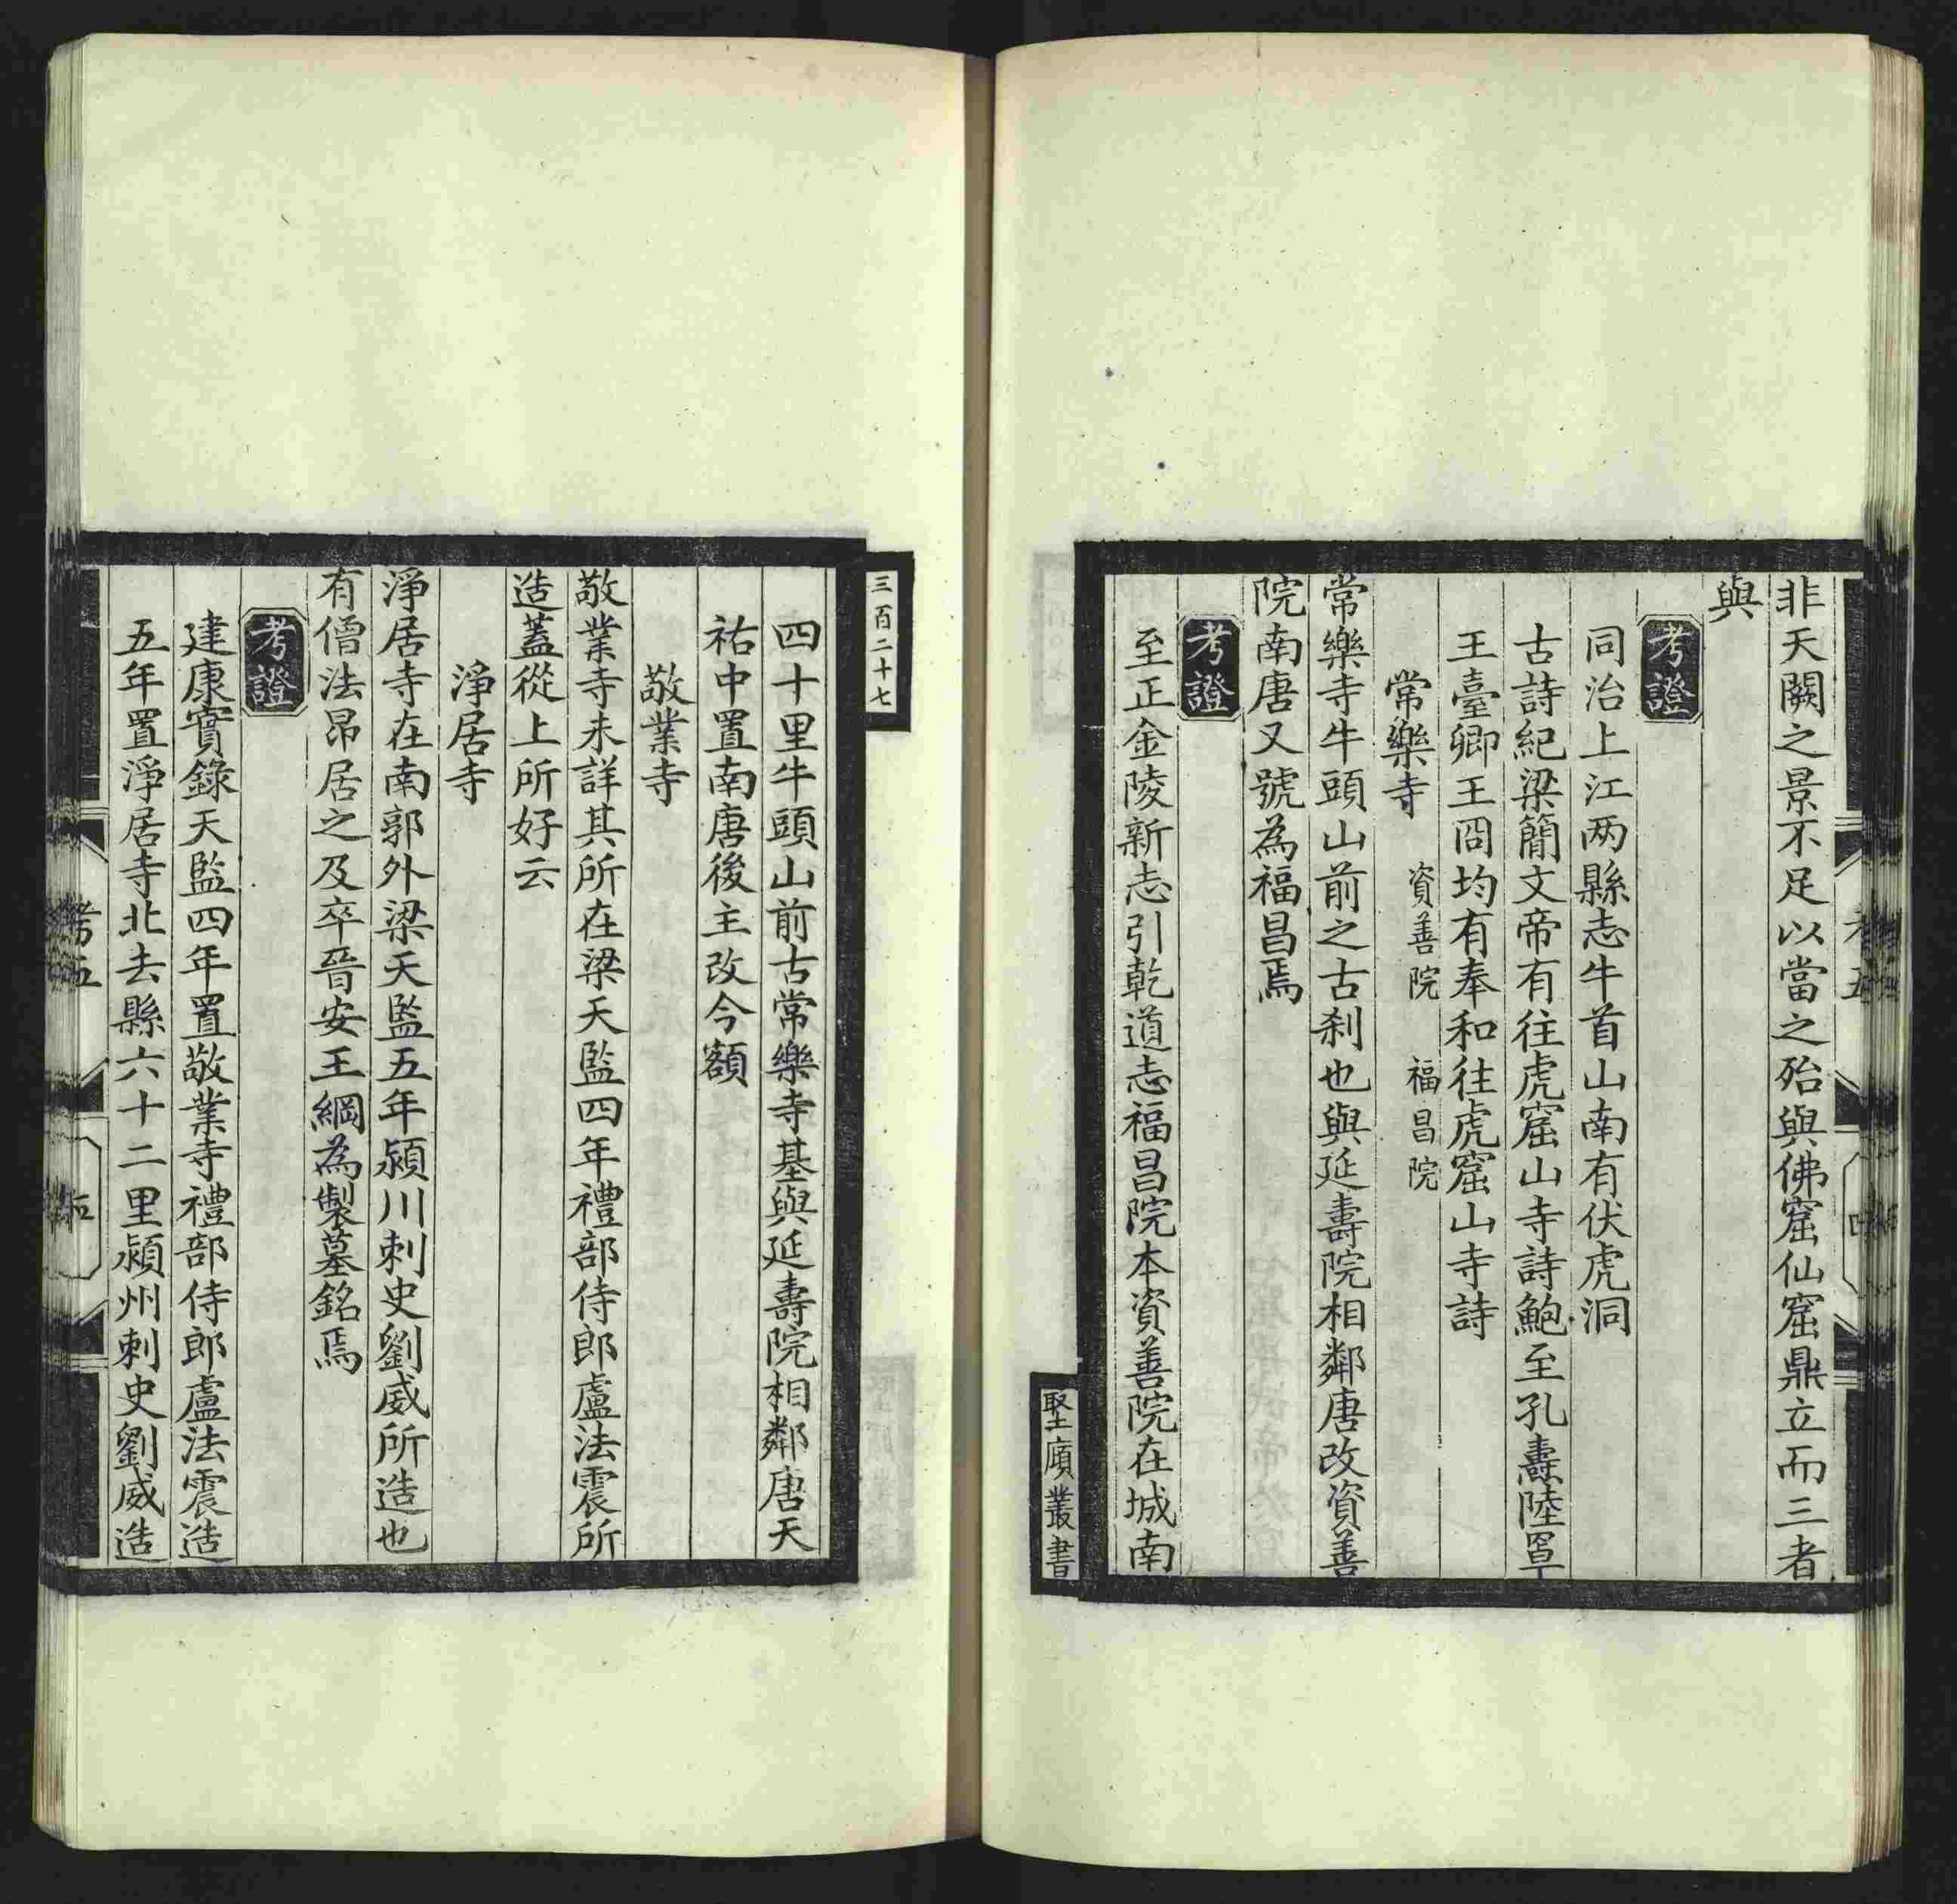 非天闕之景不足以當之殆與佛窟仙窟鼎立而三者
與
考證
同治上江两縣志牛首山南有伏虎洞
古詩紀梁簡文帝有往虎窟山寺詩鮑至孔壽陸罩
王臺卿王冏均有奉和往虎窟山寺詩
常樂寺 資善院 福昌院
常樂寺牛頭山前之古刹也與延壽院相鄰唐改資善
院南唐又號為福昌焉
考證
至正金陵新志引乾道志福昌院本資善院在城南
堅㢊叢書
三百二十七
四十里牛頭山前古常樂寺基與延壽院相鄰唐天
祐中置南唐後主改今額
敬業寺
敬業寺未詳其所在梁天監四年禮部侍郎盧法震所
造蓋從上所好云
淨居寺
淨居寺在南郭外梁天監五年潁川刺史劉威所造也
有僧法昂居之及卒晉安王綱為製墓銘焉
考證
建康實錄天監四年置敬業寺禮部侍郎盧法震造
五年置淨居寺北去縣六十二里潁州刺史劉威造
考五